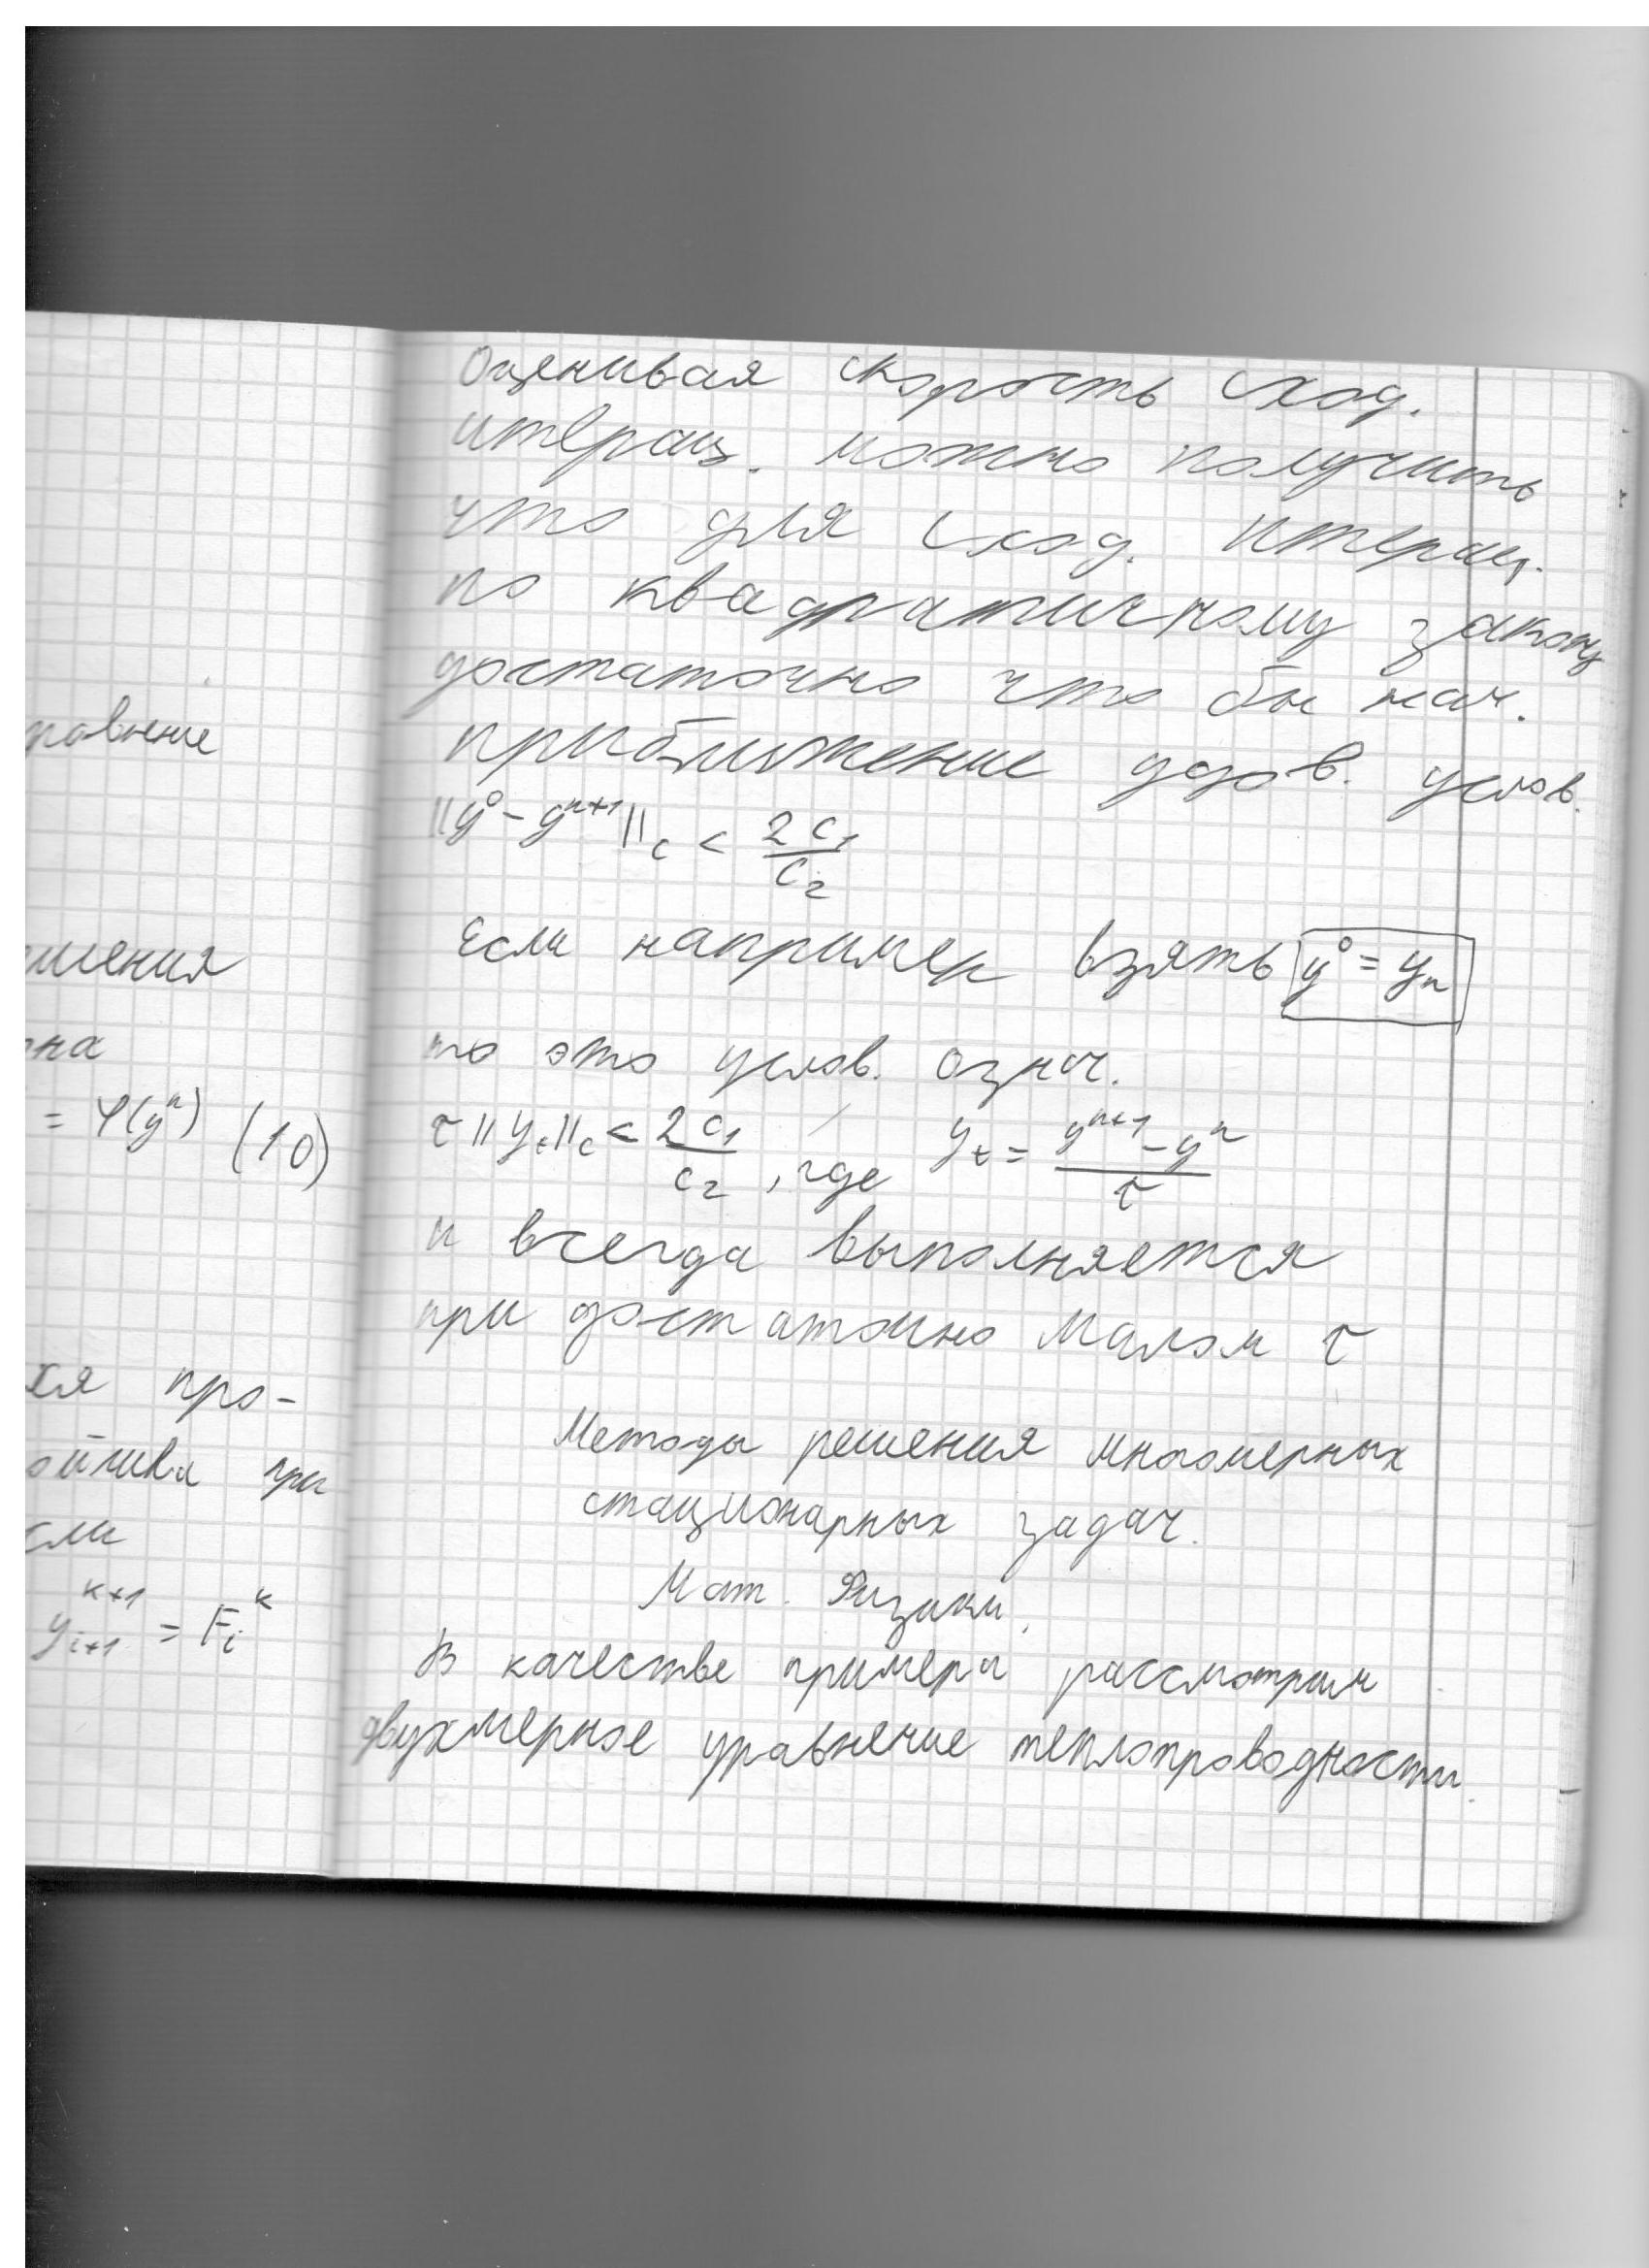 равнение
шения
на
= φ(yⁿ) (10)
ся про-
ойчива при
сли
y_{i+1}^{k+1} = F_i^k
Оценивая скорость сход.
итерац. можно получить
что для сход. итерац.
по квадратичному закону
достаточно что бы нач.
приближение удов. услов.
||y⁰ - yⁿ⁺¹||_c < 2c₁/c₂
Если например взять y⁰ = yₙ
то это услов. означ.
τ||y_t||_c < 2c₁/c₂, где y_t = (yⁿ⁺¹ - yⁿ)/τ
и всегда выполняется
при достаточно малом τ
Методы решения многомерных
стационарных задач.
Мат. Физики.
В качестве примера рассмотрим
двухмерное уравнение теплопроводности.